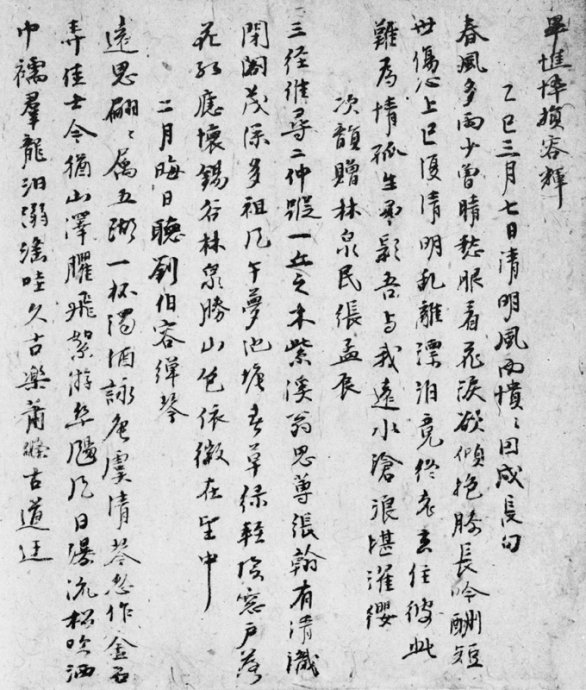 畢憔悴損容輝
乙巳三月七日清明風雨憒〻因成長句
春風多雨少曾晴愁眼看花淚欲傾抱膝長吟酬短
世傷心上巳復清明乱離漂泊竟終老去住彼此
難為情孤生吊影吾與我遠水滄浪堪濯纓
次韻贈林泉民張孟辰
三径誰尋二仲蹤一丘之木紫溪翁思蓴張翰有清識
閉閣茂深多祖風午夢池塘春草綠輕陰窓戶落
花紅應懷錫谷林泉勝山色依微在望中
二月晦日聽劉伯容彈琴
遠思翩〻属五湖一杯濁酒詠唐虞清琴忽作金石
弄佳士今猶山澤臞飛絮游絲颺風日瀑流松吹洒
巾襦羣龍汨溺滛哇久古樂蕭條古道迂